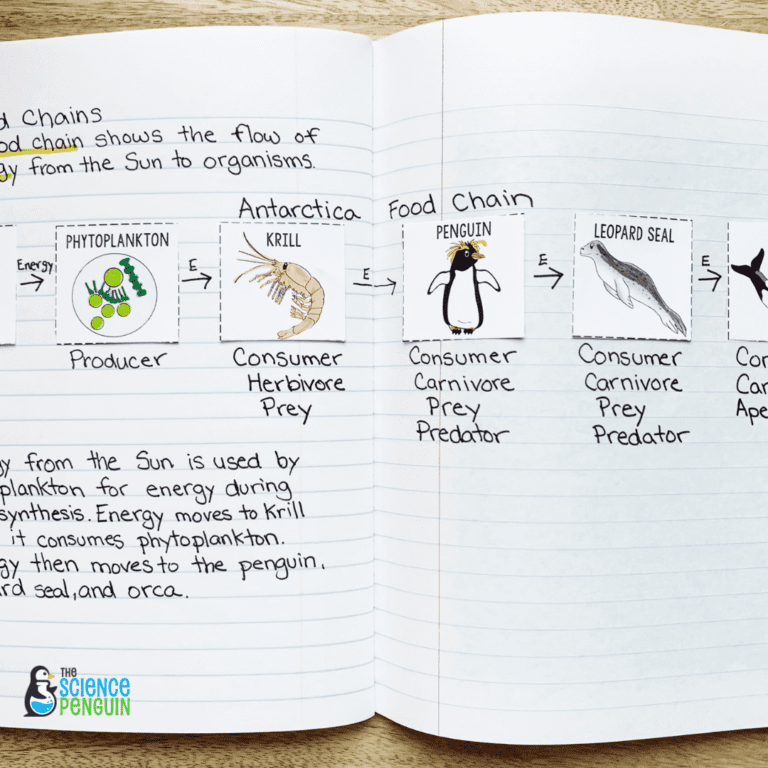 d Chains
od chain shows the flow of
gy from the Sun to organisms.
Antarctica Food Chain
Energy E E E E
PHYTOPLANKTON KRILL PENGUIN LEOPARD SEAL
Producer Consumer Consumer Consumer Con
Herbivore Carnivore Carnivore Car
Prey Prey Prey Ape
Predator Predator
gy from the Sun is used by
plankton for energy during
synthesis. Energy moves to Krill
it consumes phytoplankton.
gy then moves to the penguin,
rd seal, and orca.
THE
SCIENCE
PENGUIN